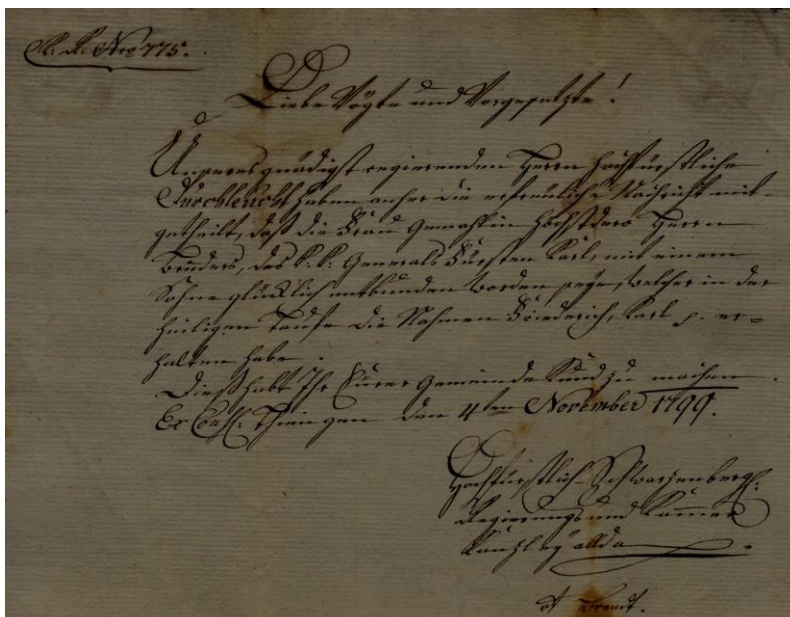 R. R. Nro 775.
Liebe Vögte und Vorgesetzte!
Unseres gnädigst regierenden Herrn Hochfürstliche
Durchleucht haben anher die erfreuliche Nachricht mit-
getheilt, daß die Frau Gemahlin Höchstdero Herrn
Bruders, des k. k. Generals Fürsten Karl, mit einem
Sohne glücklich entbunden worden seye, welcher in der
heiligen Taufe die Nahmen Friederich, Karl p. er=
halten habe.
Dieß habt Ihr Eurer Gemeinde kund zu machen.
Ex Consil: Thiengen den 4ten November 1799.
Hochfürstlich Schwarzenberg:
Regierungs und Kammer
Kanzley allda